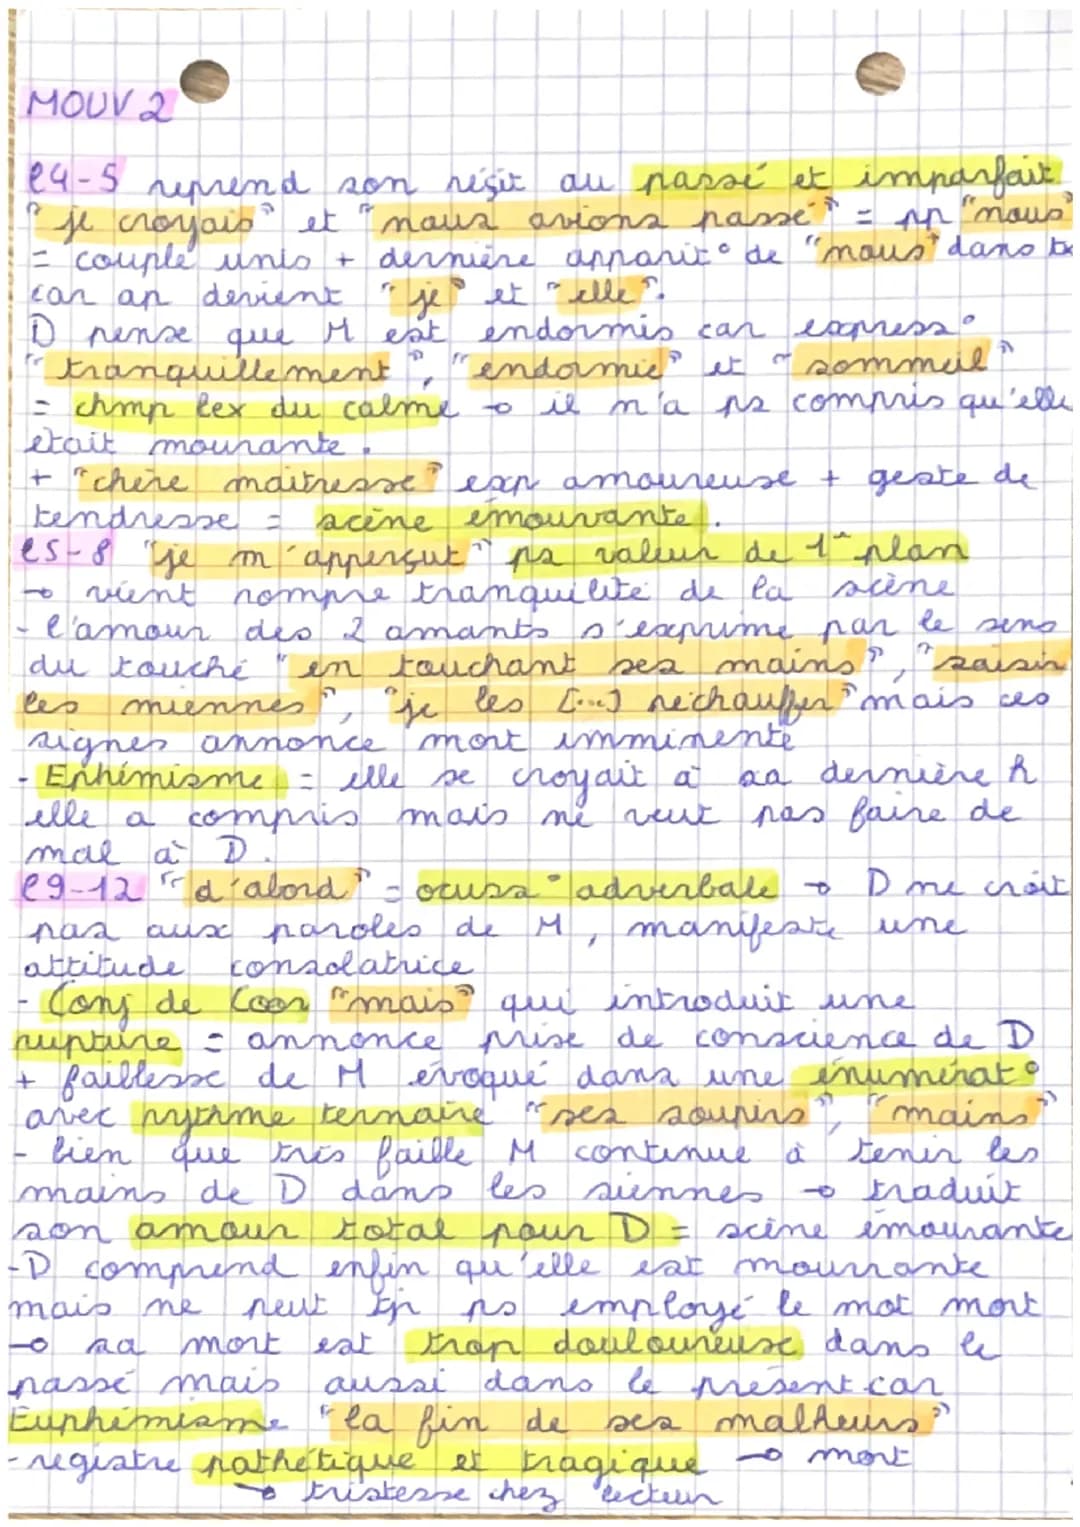 MOUV 2
l4-5 reprend son réçit au passé et imparfait
"je croyais" et "nous avions passé" = pp "nous"
= couple unis + dernière apparit° de "nous" dans tx
car ap devient "je" et "elle".
D pense que M est endormis car express°
"tranquillement", "endormie" et "sommeil"
= chmp lex du calme → il n'a ps compris qu'elle
était mourante.
+ "chère maitresse" exp amoureuse + geste de
tendresse = scène émouvante.
l5-8 "je m'apperçut" ps valeur de 1er plan
→ vient rompre tranquilité de la scène
- l'amour des 2 amants s'exprime par le sens
du touché "en touchant ses mains", "saisir
les miennes", "je les [...] réchauffer" mais ces
signes annonce mort imminente
- Ephémisme = elle se croyait à sa dernière h
elle a compris mais ne veut pas faire de
mal à D.
l9-12 "d'abord" = adverbale → D ne croit
pas aux paroles de M, manifeste une
attitude consolatrice
- Conj de Coor "mais" qui introduit une
rupture = annonce prise de conscience de D
+ faillesse de M évoqué dans une énumérat°
avec rythme ternaire "ses soupirs", "mains"
- bien que très faible M continue à tenir les
mains de D dans les siennes → traduit
son amour total pour D = scène émourante
-D comprend enfin qu'elle est mourrante
mais ne peut tjr ps employé le mot mort
→ sa mort est trop douloureuse dans le
passé mais aussi dans le présent car
Euphémisme "la fin de ses malheurs"
- registre pathétique et tragique → mort
→ tristesse chez lecteur